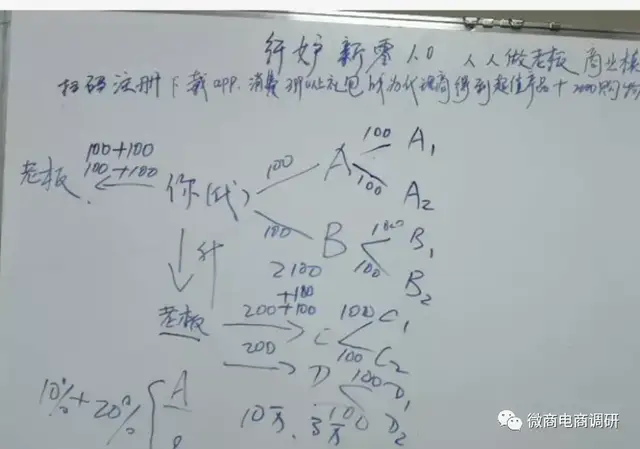 纤妒新零1.0 人人做老板 商业模
扫码注册下载app.消费399以上礼包成为代理商得到超值产品+2000购物
100+100
100+100
老板
你(代)
100
A
100
A1
100
A2
100
B
100
B1
100
B2
升
2100
+100
老板
200+100
C
100
C1
100
C2
200
D
100
D1
100
D2
10%+20%
A
10万.
3万
微商电商调研